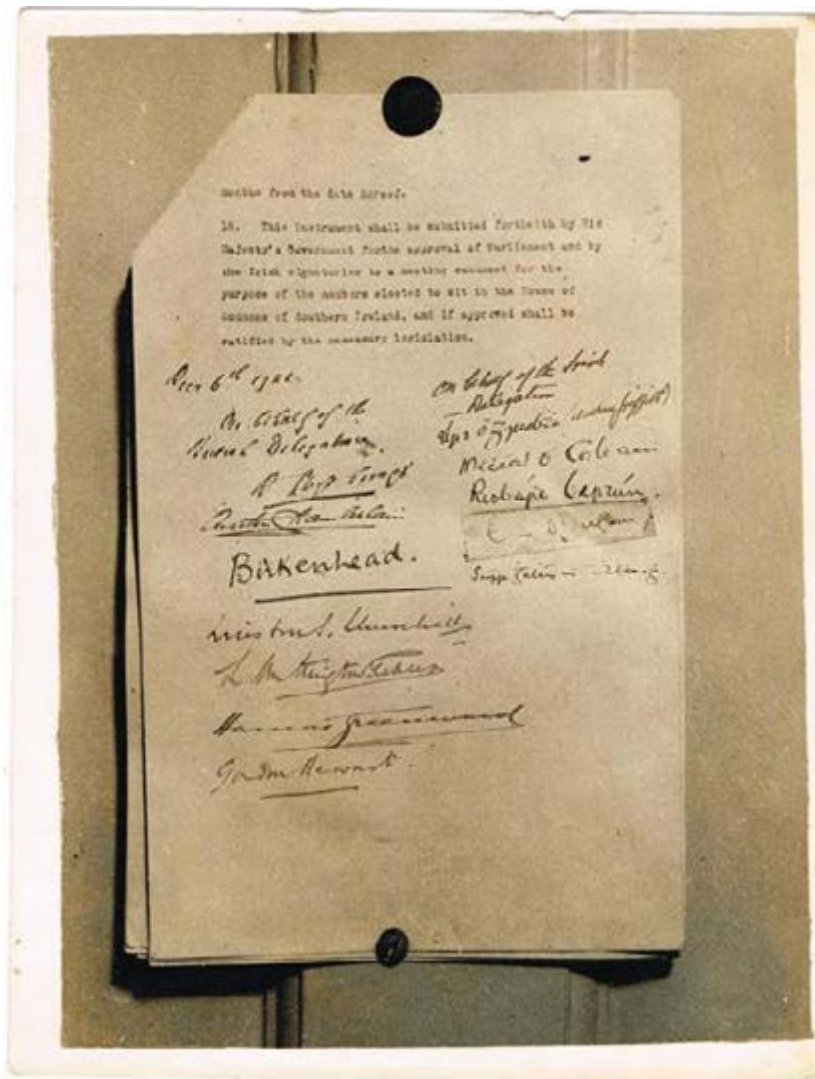 months from the date hereof.
18. This instrument shall be submitted forthwith by His
Majesty's Government for the approval of Parliament and by
the Irish signatories to a meeting summoned for the
purpose of the members elected to sit in the House of
Commons of Southern Ireland, and if approved shall be
ratified by the necessary legislation.
Decr 6th 1921.
On behalf of the
British Delegation.
D Lloyd George
Austen Chamberlain
Birkenhead.
Winston S. Churchill
L Worthington Evans
Hamar Greenwood
Gordon Hewart.
On behalf of the Irish
Delegation
Art Ó Gríobhtha
Micheál Ó Coileain
Riobárd Bartún.